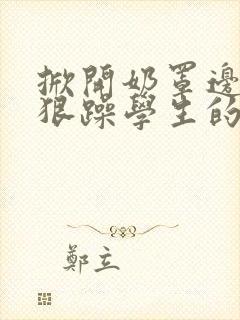 掀開奶罩邊
狠躁學生的
鄭立